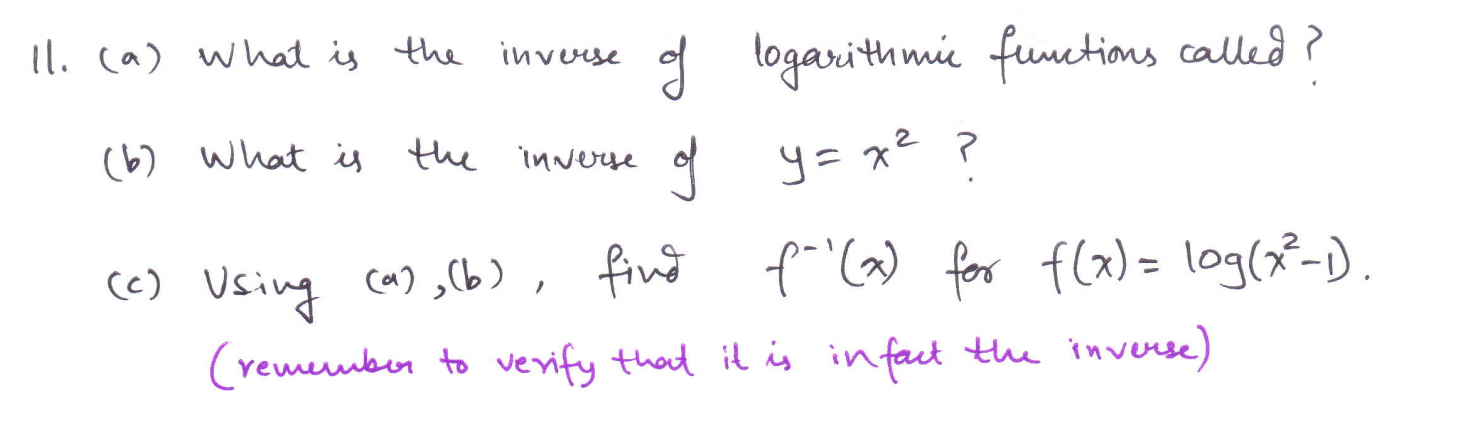 11. (a) What is the inverse of logarithmic functions called?
(b) What is the inverse of y = x² ?
(c) Using (a), (b), find f⁻¹(x) for f(x) = log(x²-1).
(remember to verify that it is in fact the inverse)